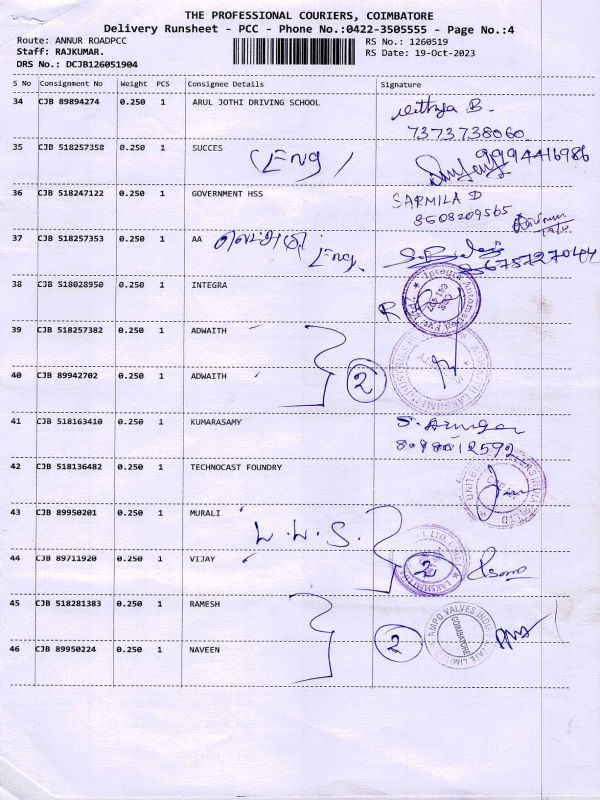 THE PROFESSIONAL COURIERS, COIMBATORE
Delivery Runsheet - PCC - Phone No.:0422-3505555 - Page No.:4
Route: ANNUR ROADPCC RS No.: 1260519
Staff: RAJKUMAR. RS Date: 19-Oct-2023
DRS No.: DCJB126051904
S No Consignment No Weight PCS Consignee Details Signature
34 CJB 89894274 0.250 1 ARUL JOTHI DRIVING SCHOOL
7373738060
35 CJB 518257358 0.250 1 SUCCES (Eng) 9994416986
36 CJB 518247122 0.250 1 GOVERNMENT HSS SARMILA D
8508209565
37 CJB 518257353 0.250 1 AA Eng.
38 CJB 518028950 0.250 1 INTEGRA
39 CJB 518257382 0.250 1 ADWAITH
40 CJB 89942702 0.250 1 ADWAITH 2
41 CJB 518163410 0.250 1 KUMARASAMY
42 CJB 518136482 0.250 1 TECHNOCAST FOUNDRY
43 CJB 89950201 0.250 1 MURALI
44 CJB 89711920 0.250 1 VIJAY 2
45 CJB 518281383 0.250 1 RAMESH
46 CJB 89950224 0.250 1 NAVEEN 2
COIMBATORE